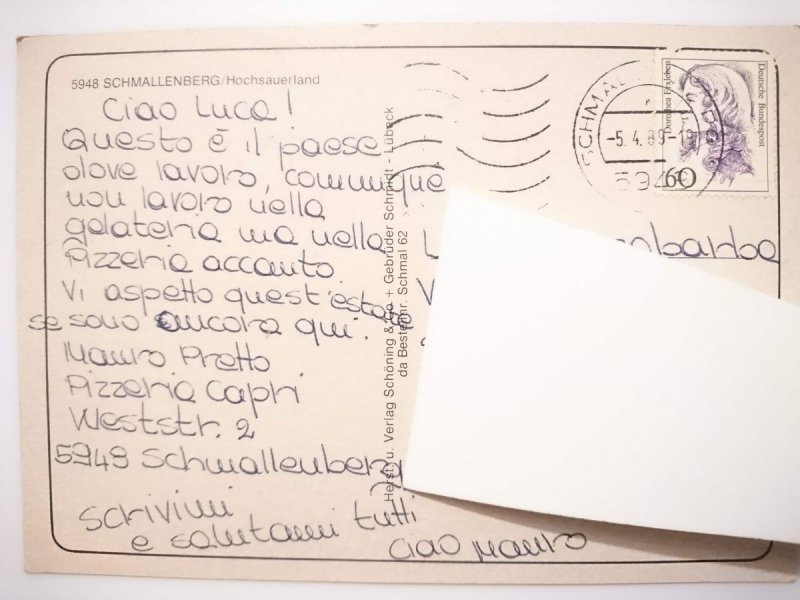 5948 SCHMALLENBERG/Hochsauerland
Ciao Luca!
Questo è il paese
dove lavoro, comunque
non lavoro nella
gelateria ma nella
Pizzeria accanto.
Vi aspetto quest'estate
se sono ancora qui.
Mauro Pretto
Pizzeria Capri
Weststr. 2
5949 Schmallenberg
Scrivimi
e salutami tutti
Ciao Mauro
Herst. u. Verlag Schöning & Co + Gebrüder Schmidt - Lübeck
da Bestellnr. Schmal 62
-5.4.89-1
594
Dorothea Erxleben
Deutsche Bundespost
60